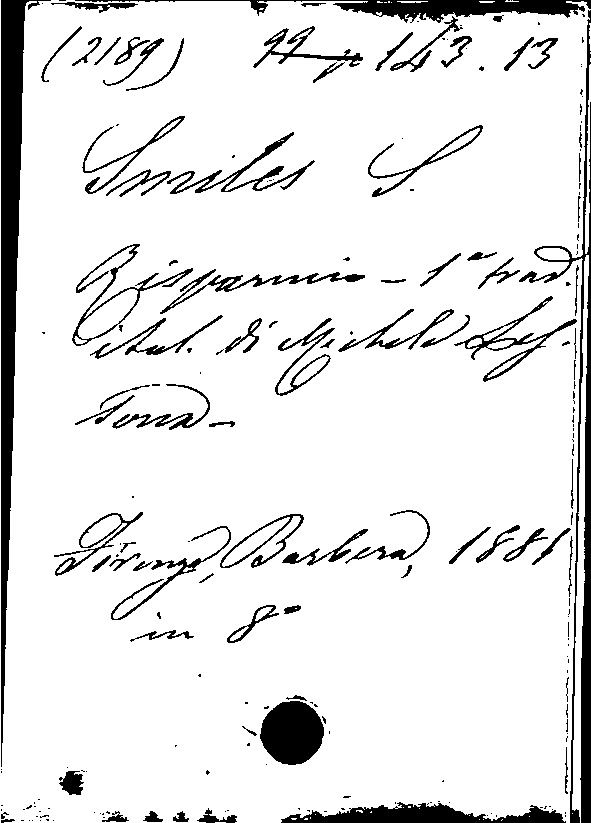 (2189) 143.13
Smiles S.
Risparmio - 1ª trad.
ital. di Michele Les-
sona -
Firenze, Barbera, 1881
in 8°